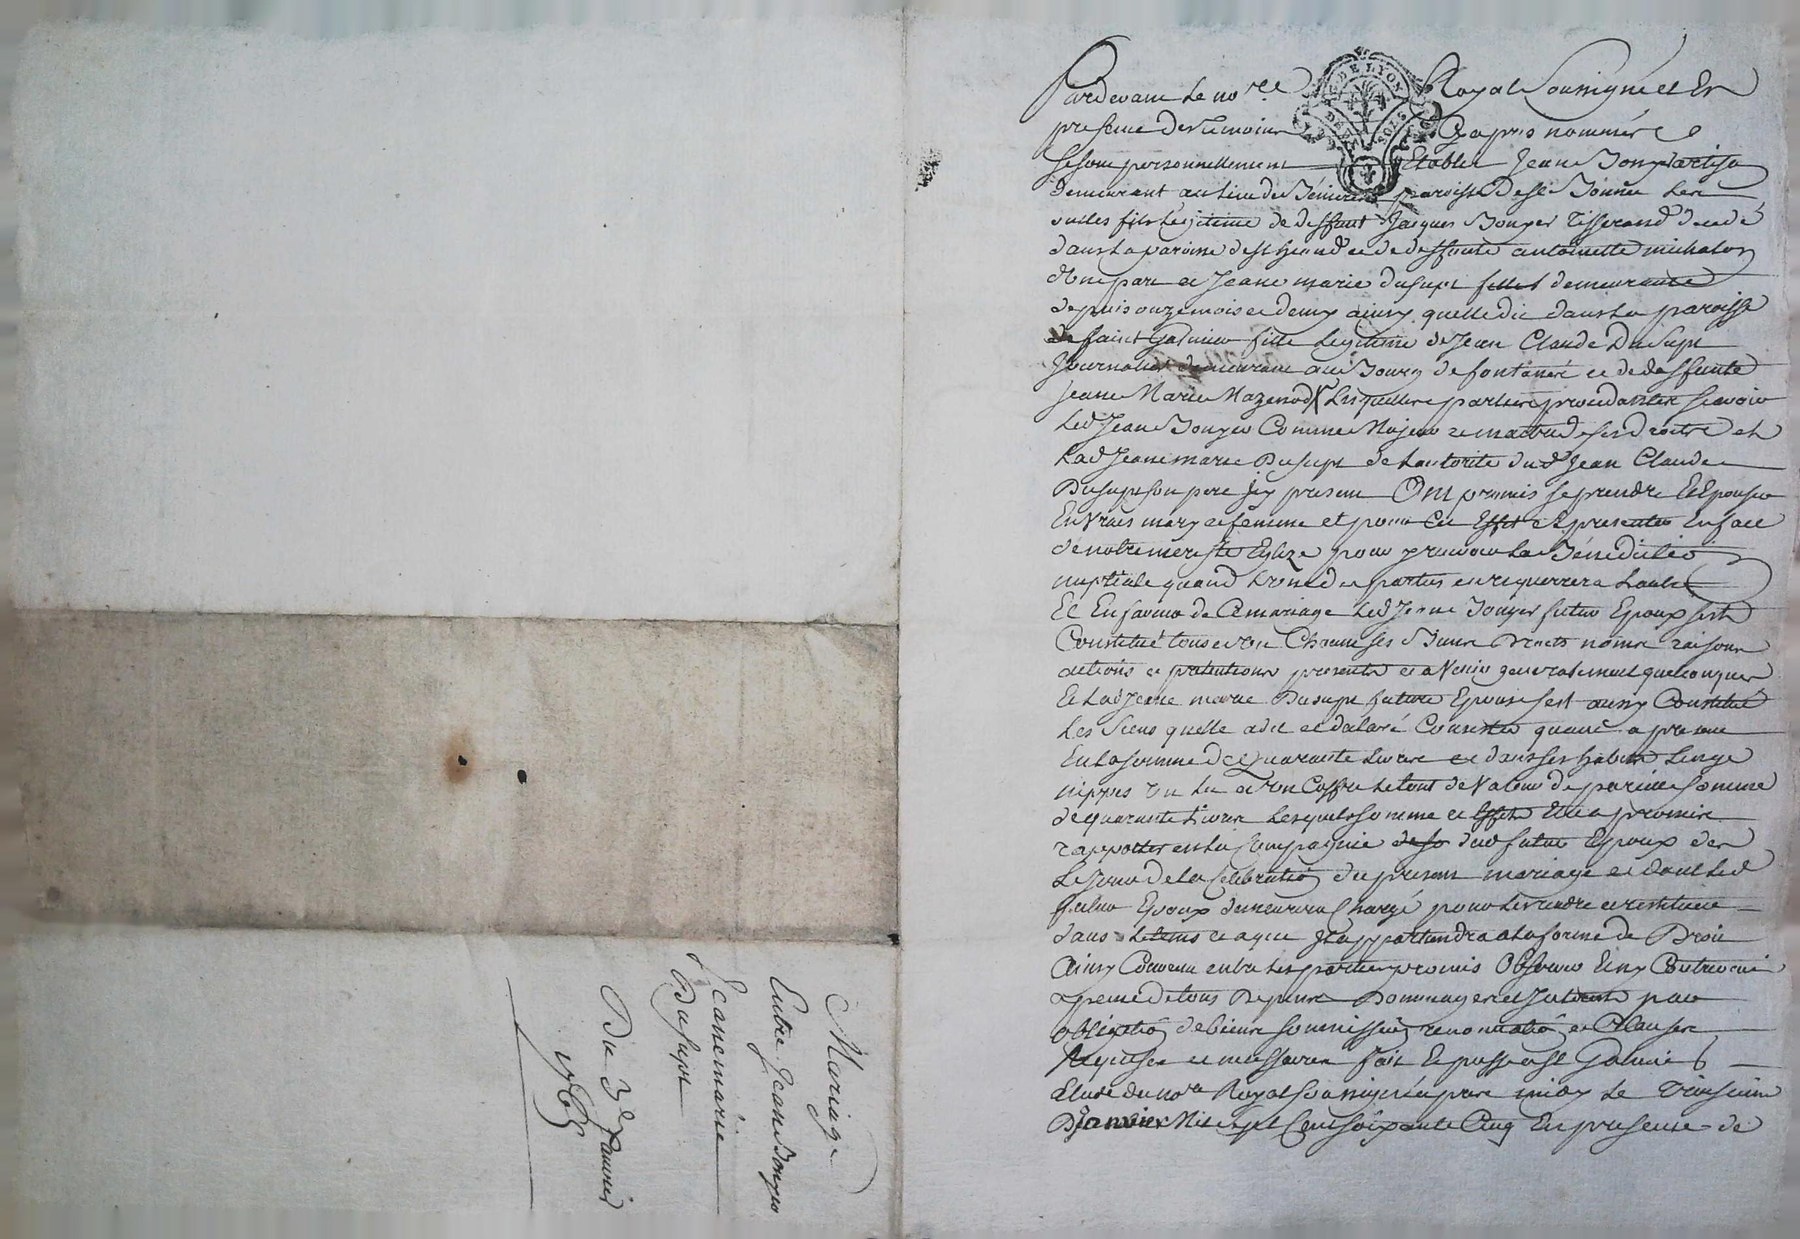 Mariage
Entre Jean Bouyer
Jeanemarie
Dusupt
Du 3e Janvier
1765
G. DE LYON
DEUX SOLS
Pardevant Le nore Royal Soussigné et En
presence Des temoins Cy apres nommés
se sont personnellement Etablis Jean Bouyer
demeurant au Lieu de paroisse De st Bonnet Les
oulles fils Legitime de deffunt Jacques Bouyer Tisserand decedé
dans La paroisse de st heand et de deffunte antoinette michalon
d'Une part et Jeane marie dusupt demeurante
depuis onze mois et demy ainsy quelle dit dans La paroisse
de saint Galmier fille Legitime de Jean Claude Dusupt
Journalier demeurant au Bourg de fontanés et de deffunte
Jeane Marie Mazenod Lesquelles parties procedantes scavoir
Led Jean Bouyer Comme Majeur et maitre de ses droits et
Lad Jeane marie Dusupt de Lautorité dud Jean Claude
Dusupt son pere icy present Ont promis se prendre Et Epouser
En Vrais mary et femme et pour Cet Effet se presenter En face
de notre mere ste Eglize pour recevoir La Bénédiction
nuptiale quand L'une des parties en requerrera L'autre
Et En faveur de Ce mariage Led Jean Bouyer futur Epoux sest
Constitué tous et Un Chacuns ses Biens Droits noms raisons
actions et pretentions presents et a Venir generalement quelconques
Et Lad Jeane marie Dusupt future Epouse sest aussy Constitué
Les Siens quelle a dit et declaré Consister quant a present
En La somme de Quarante Livres et dans ses habits Linge
nippes Un Lit et Un Coffre Le tout de Valeur de pareille somme
de quarante Livres Lesquels somme et Effets Elle a promis
rapporter en La Compagnie dud futur Epoux des
Le Jour de La Celebration du present mariage et dont Led
futur Epoux demeurera Chargé pour Les rendre et restituer
dans Le tems et a qui Il appartiendra a La forme de Droit
Ainsy Convenu entre Les parties promis Observer
a peine de tous Depens Dommages et Interets par
obligation de biens soumissions renonciation et Clauses
Requises et necessaires fait Et passé a st Galmier
Etude du nore Royal Soussigné apres midy Le troisieme
Janvier Mil sept Cent Soixante Cinq En presence de